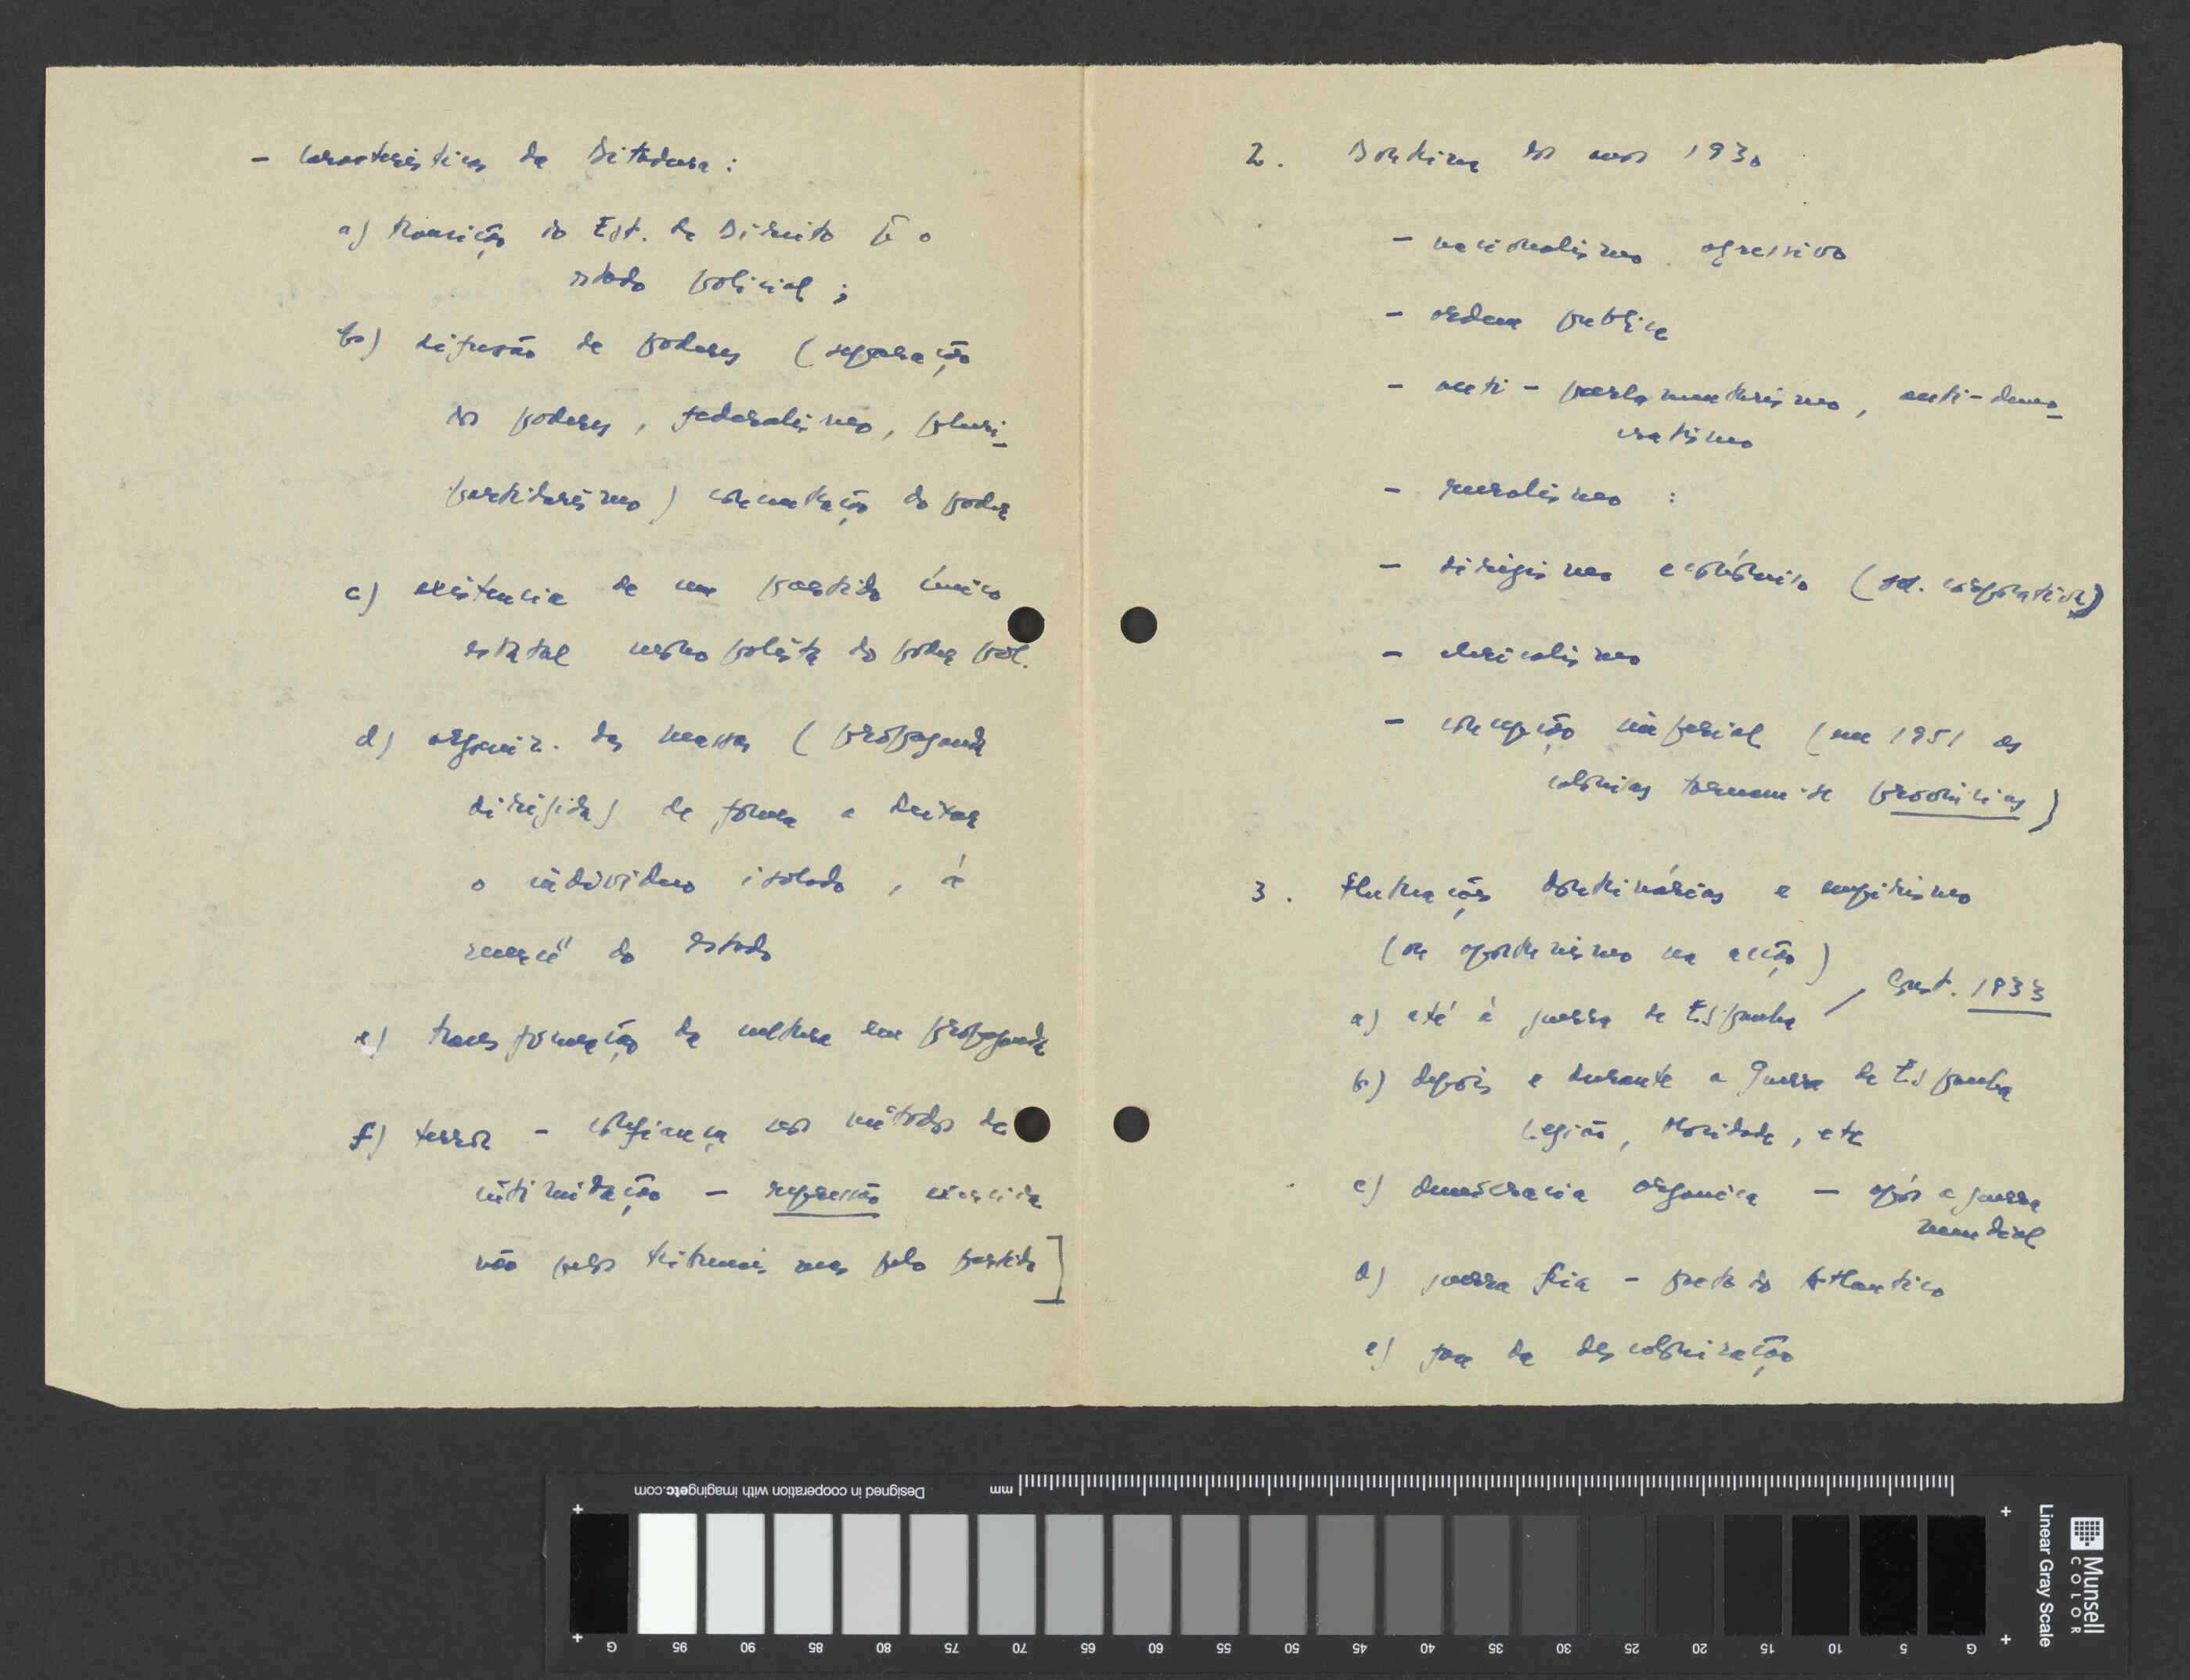 - Características da Ditadura:
a) transição do Est. de Direito p̄ o
estado policial;
b) difusão de poderes (separação
dos poderes, federalismo, pluri-
partidarismo) concentração do poder
c) existencia de um partido único
estatal monopolista do poder pol.
d) organiz. das massas (propaganda
dirigida) de forma a deixar
o individuo isolado, à
mercê do Estado
e) transformação da cultura em propaganda
f) terror - confiança nos métodos de
intimidação - repressão exercida
não pelos tribunais mas pelo partido]
2. Doutrina dos anos 1930
- nacionalismo agressivo
- ordem publica
- anti-parlamentarismo, anti-demo-
cratismo
- ruralismo :
- dirigismo económico (sol. corporativa)
- clericalismo
- concepção imperial (em 1951 as
colonias tornam-se províncias)
3. Flutuações doutrinárias e empirismo
(ou oportunismo na acção)
a) até à guerra de Espanha / Const. 1933
b) depois e durante a Guerra de Espanha
Legião, Mocidade, etc
c) democracia organica - após a guerra
mundial
d) guerra fria - pacto do Atlantico
e) fase da descolonização
Designed in cooperation with imagingetc.com
mm
G 95 90 85 80 75 70 65 60 55 50 45 40 35 30 25 20 15 10 5 G
Munsell
COLOR
Linear Gray Scale